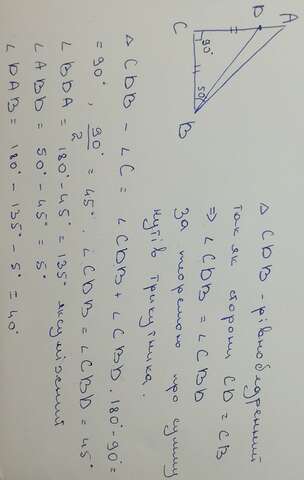 A
D
C
90°
50°
B
△ CDB - рівнобедренний
так як сторони CD = CB
⇒ ∠CDB = ∠CBD
За теоремою про сумму
кутів трикутника.
△ CDB - ∠C = ∠CDB + ∠CBD. 180°-90°=
= 90°, 90°/2 = 45°. ∠CDB = ∠CBD = 45°
∠BDA = 180°-45° = 135° як суміжний
∠ABD = 50°-45° = 5°
∠DAB = 180° - 135° - 5° = 40°